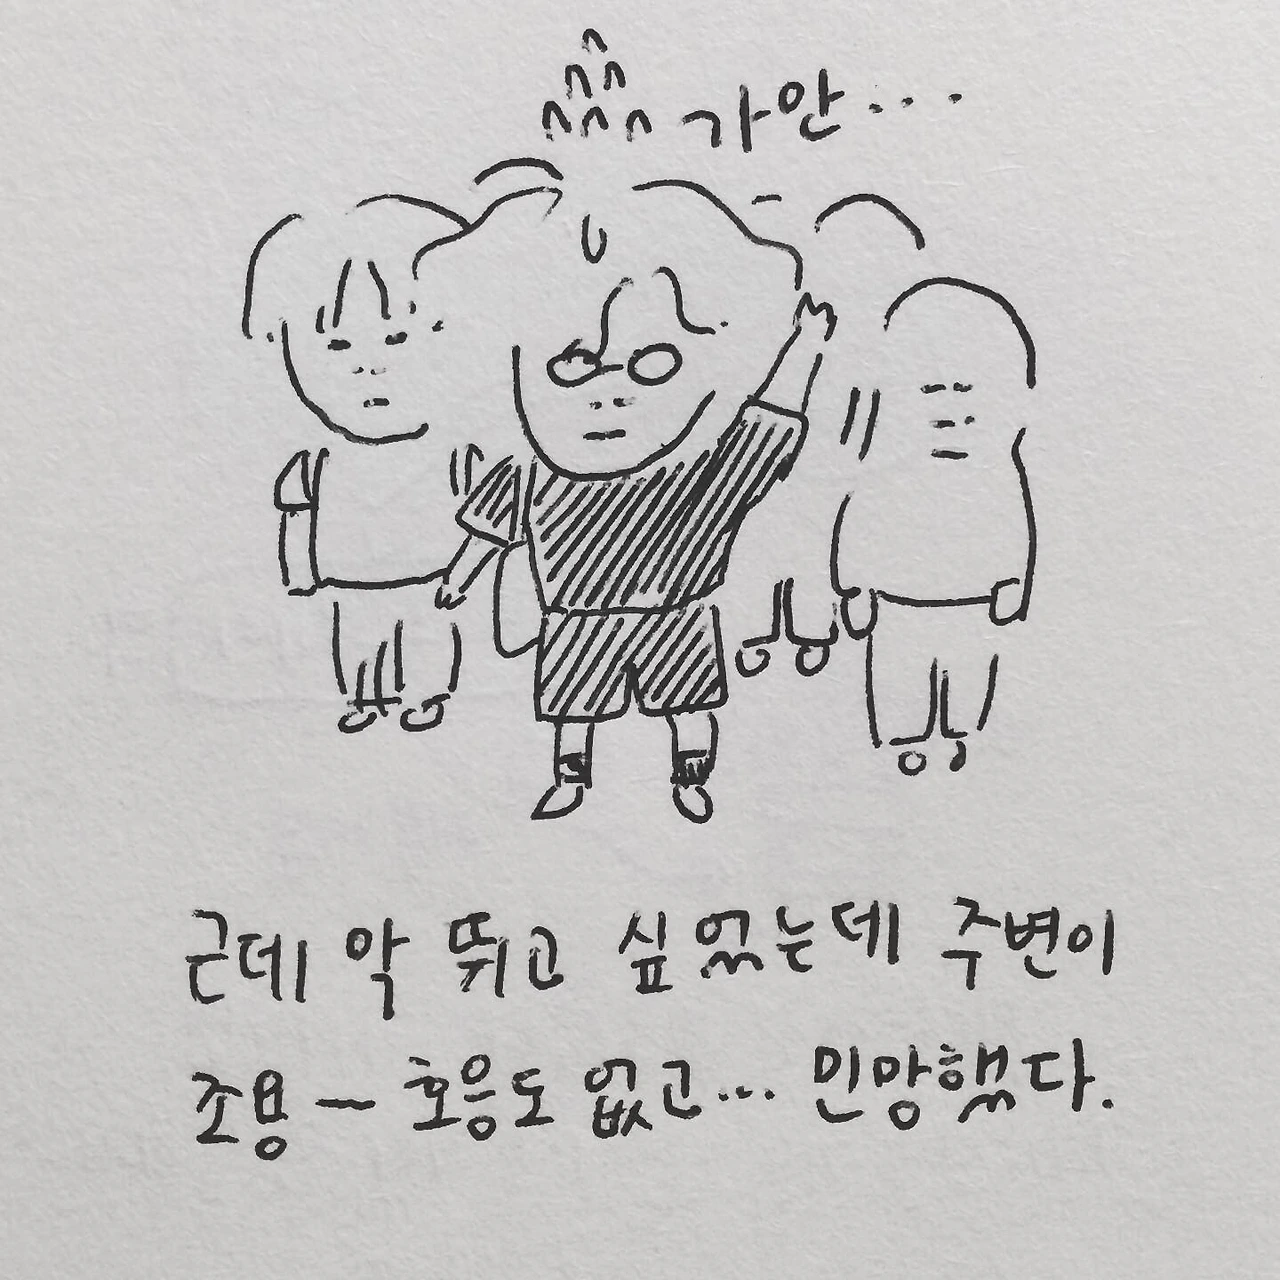 가만...
근데 막 뛰고 싶었는데 주변이
조용~ 호응도 없고... 민망했다.